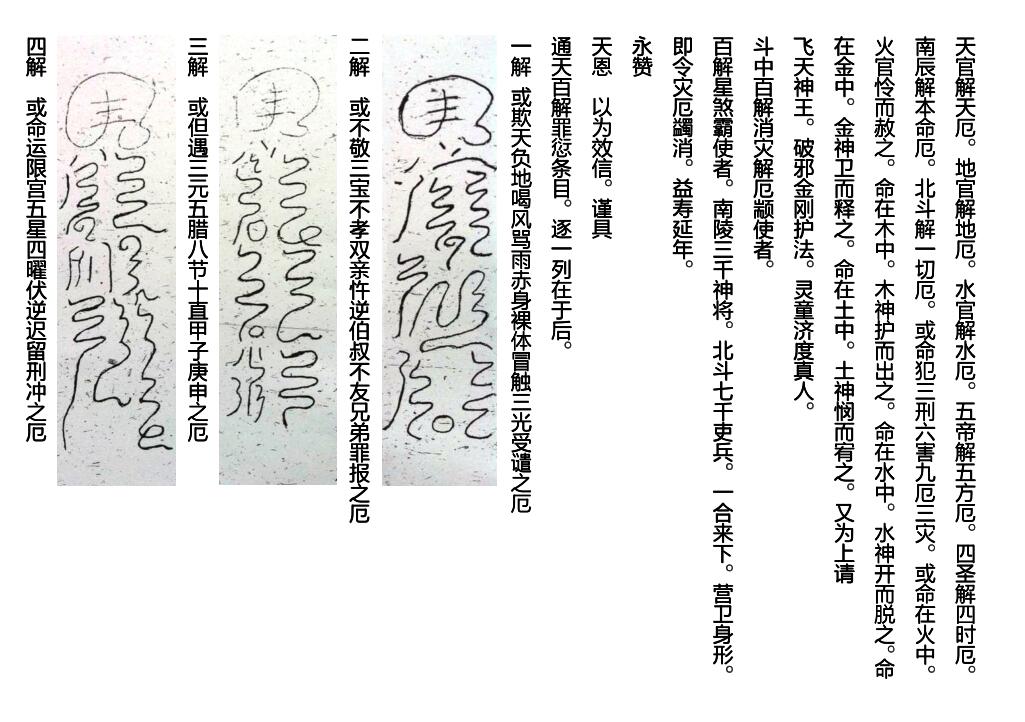 天官解天厄。地官解地厄。水官解水厄。五帝解五方厄。四圣解四时厄。
南辰解本命厄。北斗解一切厄。或命犯三刑六害九厄三灾。或命在火中。
火官怜而赦之。命在木中。木神护而出之。命在水中。水神开而脱之。命
在金中。金神卫而释之。命在土中。土神悯而宥之。又为上请
飞天神王。破邪金刚护法。灵童济度真人。
斗中百解消灾解厄颛使者。
百解星煞霸使者。南陵三千神将。北斗七千吏兵。一合来下。营卫身形。
即令灾厄蠲消。益寿延年。
永赞
天恩 以为效信。谨具
通天百解罪愆条目。逐一列在于后。
一解 或欺天负地喝风骂雨赤身裸体冒触三光受谴之厄
二解 或不敬三宝不孝双亲忤逆伯叔不友兄弟罪报之厄
三解 或但遇三元五腊八节十直甲子庚申之厄
四解 或命运限宫五星四曜伏逆迟留刑冲之厄